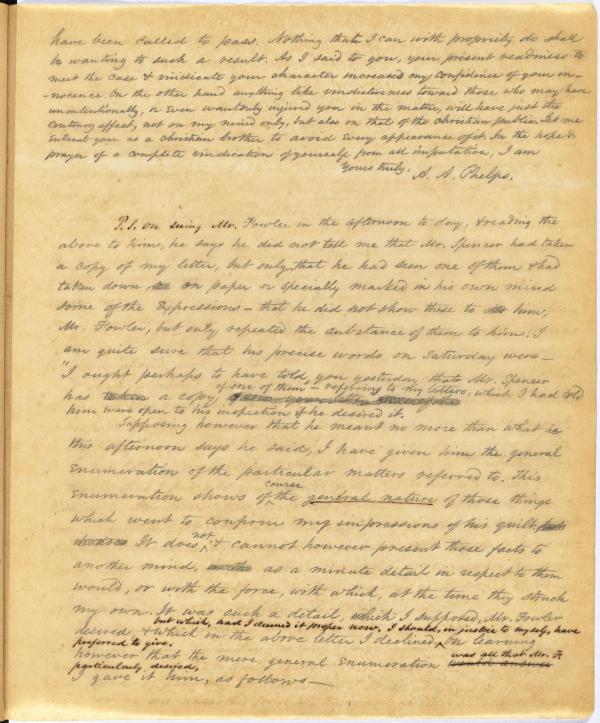 have been called to pass. Nothing that I can with propriety do shall
be wanting to such a result. As I said to you, your present readiness to
meet the case & vindicate your character increased my confidence of your in-
-nocence. On the other hand anything like vindictiveness toward those who may have
unintentionally, or even wantonly injured you in the matter, will have just the
contrary effect, not on my mind only, but also on that of the christian public. Let me
entreat you as a christian brother to avoid every appearance of it. In the hope &
prayer of a complete vindication of yourself from all imputation, I am
Yours truly,
A. A. Phelps.
P.S. On seeing Mr. Fowler in the afternoon to day, & reading the
above to him, he says he did not tell me that Mr. Spencer had taken
a copy of my letter, but only that he had seen one of them & had
taken down on paper or specially marked in his own mind
some of the expressions – that he did not show these to him,
Mr. Fowler, but only repeated the substance of them to him. I
am quite sure that his precise words on Saturday were –
"I ought perhaps to have told you yesterday that Mr. Spencer
has taken a copy of one of them" – referring to my letters, which I had told
him were open to his inspection if he desired it.
Supposing however that he meant no more than what he
this afternoon says he said, I have given him the general
enumeration of the particular matters referred to. This
enumeration shows of course the general nature of those things
which went to confirm my impressions of his guilt
It does not & cannot however present those facts to
another mind, as a minute detail in respect to them
would, or with the force, with which, at the time they struck
my own. It was such a detail which I supposed, Mr. Fowler
desired & which in the above letter I declined, but which, had I deemed it proper now, I should, in justice to myself, have
preferred to give. On learning
however that the mere general enumeration was all that Mr. F.
particularly desired, would answer
I gave it him, as follows –